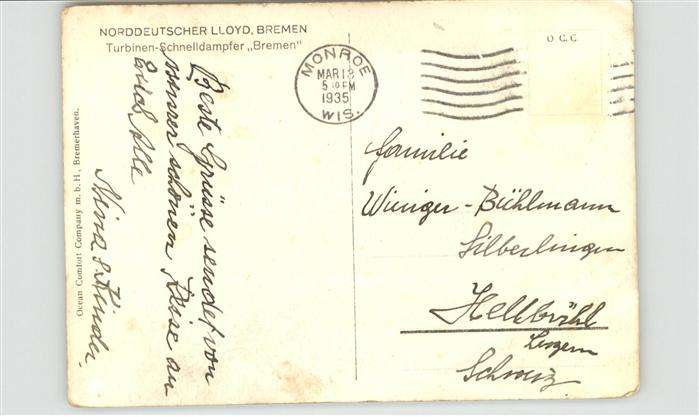 NORDDEUTSCHER LLOYD, BREMEN
Turbinen-Schnelldampfer „Bremen"
Beste Grüsse sendet von
unsrer schönen Reise an
Euch Alle
Nina & Kinder.
Ocean Comfort Company m. b. H., Bremerhaven.
MONROE
MAR 18
5 PM
1935
WIS.
O.C.C.
Familie
Winiger-Bühlmann
Silberlingen
Hellbühl
Luzern
Schweiz